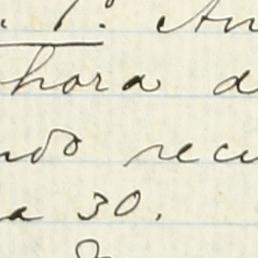 hora d
ndo recu
a 30.